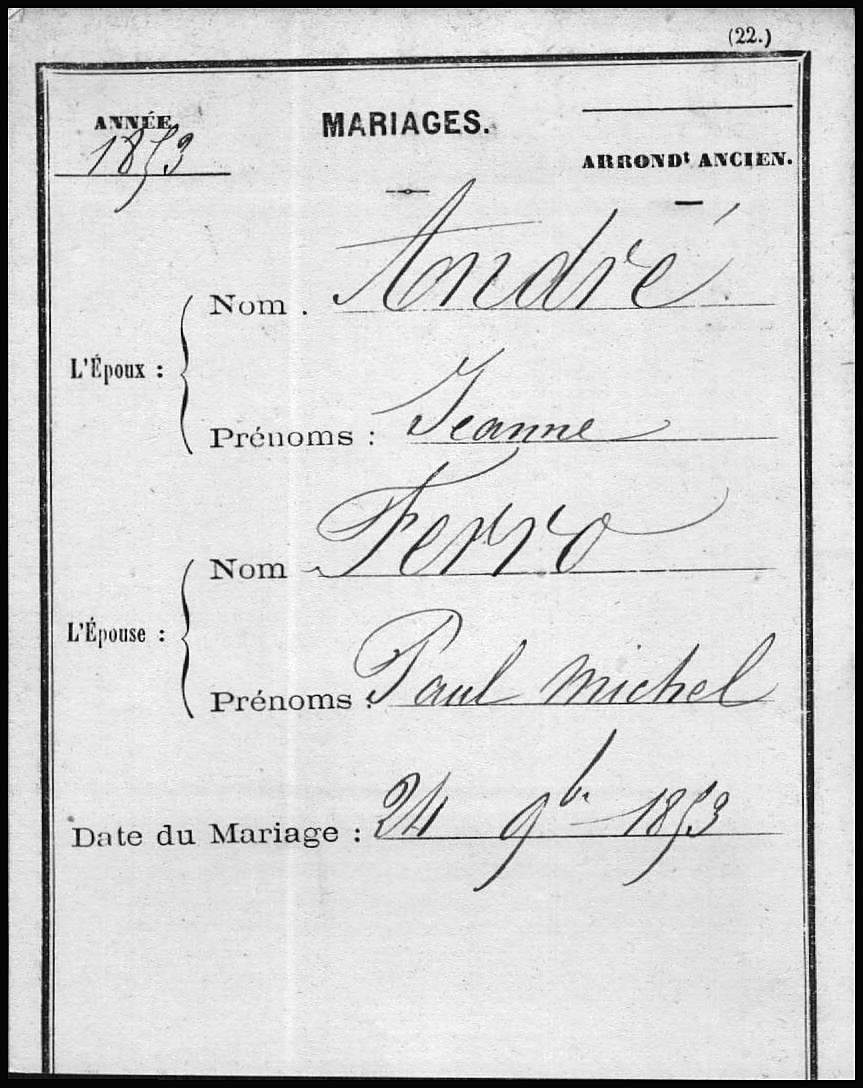 (22.)
ANNÉE
1853
MARIAGES.
ARRONDt ANCIEN.
L'Époux :
Nom . André
Prénoms : Jeanne
L'Épouse :
Nom Ferro
Prénoms : Paul Michel
Date du Mariage : 24 9bre 1853